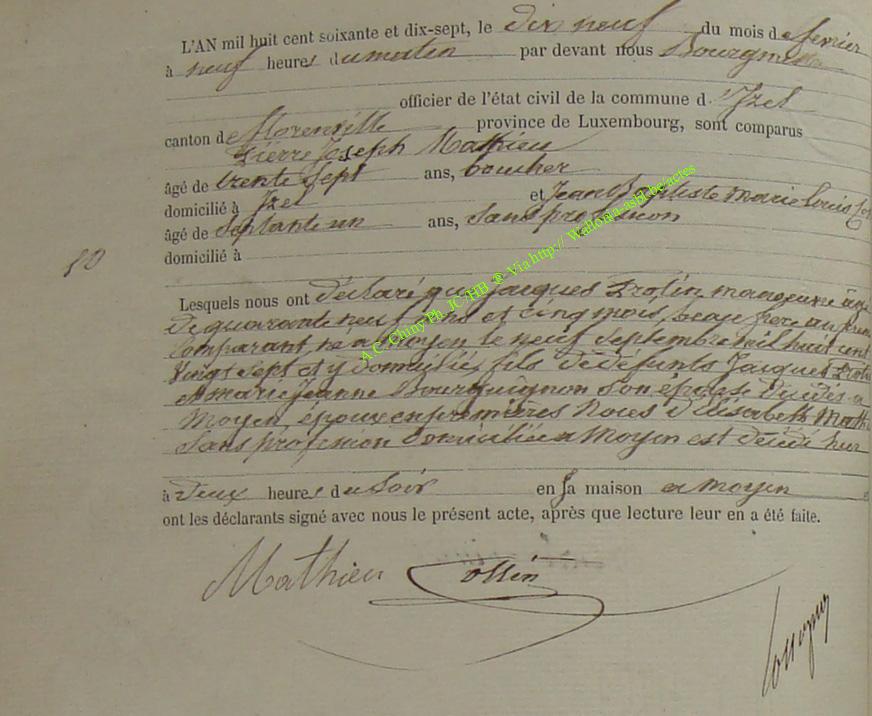 L'AN mil huit cent soixante et dix-sept, le dix neuf du mois de fevrier
à neuf heures du matin par devant nous Bourgmestre
officier de l'état civil de la commune d'Izel
canton de florenville province de Luxembourg, sont comparus
Pierre Joseph Mathieu
âgé de trente sept ans, boucher
domicilié à Izel et Jean Baptiste Marie Louis
âgé de Septante un ans, Sans profession
domicilié à
10
Lesquels nous ont déclaré que Jacques Protin manoeuvre âgé
de quarante neuf ans et cinq mois, beau frere au premier
Comparant, né a Moyen le neuf Septembre mil huit cent
Vingt Sept et y domicilié, fils de défunts Jacques Protin
et Marie Jeanne Bourguignon Son épouse décédés a
Moyen, époux en premières Noces d'Elisabeth Mathieu
Sans profession domiciliée a Moyen est décédé hier
à deux heures du Soir en Sa maison a Moyen
ont les déclarants signé avec nous le présent acte, après que lecture leur en a été faite.
Mathieu Collin
A.C. Chiny Ph. JC-HB ® Via http:// Wallonia-asbl.be/actes